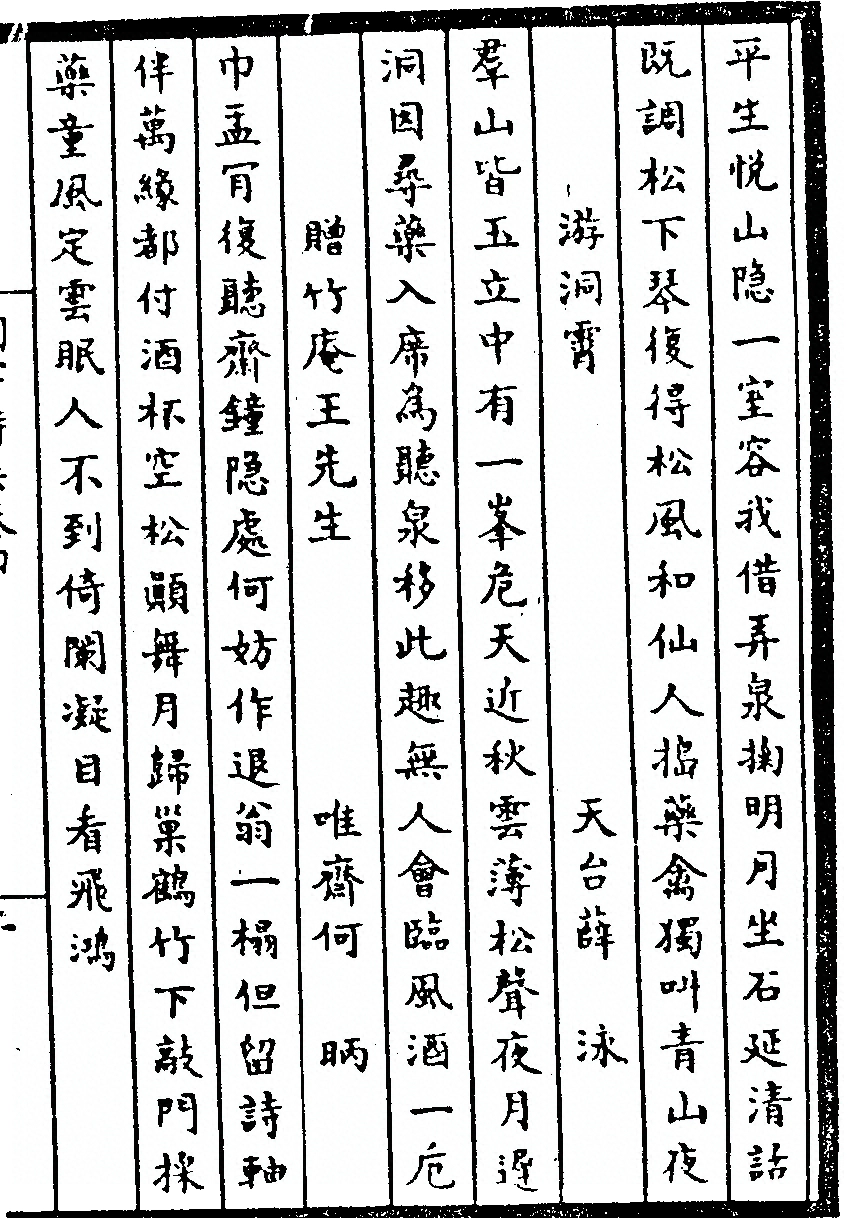 平生悦山隐一室容我借弄泉掬明月坐石延清話
既調松下琴復得松風和仙人搗藥禽獨叫青山夜
游洞霄　天台薛　泳
羣山皆玉立中有一峯危天近秋雲薄松聲夜月遲
洞因尋藥入席為聽泉移此趣無人會臨風酒一卮
贈竹庵王先生　唯齋何　昞
巾盂肎復聽齋鐘隐處何妨作退翁一榻但留詩軸
伴萬緣都付酒杯空松顚舞月歸巢鶴竹下敲門採
藥童風定雲眠人不到倚闌凝目看飛鴻